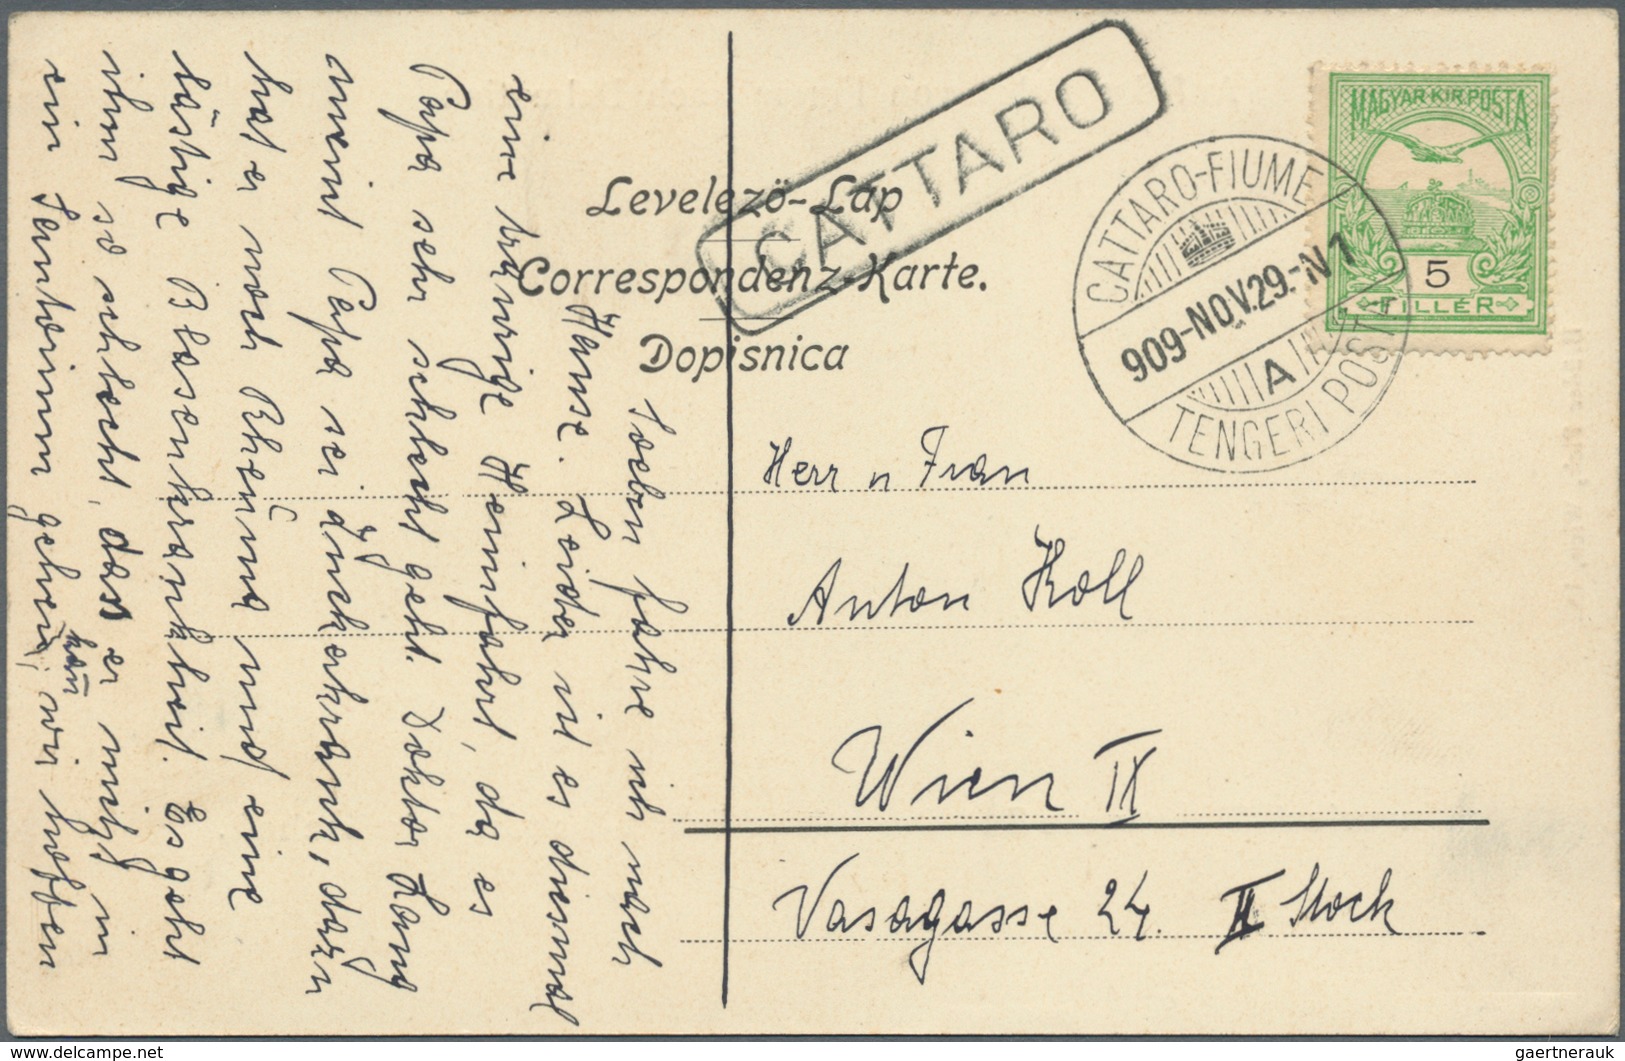 MAGYAR KIR. POSTA
5
FILLÉR
CATTARO
CATTARO-FIUME
909-NOV.29.-N1
A
TENGERI POSTA
Levelező-Lap
Correspondenz-Karte.
Dopisnica
Herr u Frau
Anton Koll
Wien IX
Vasagasse 24. II Stock
Soeben fahre ich nach
Hause. Leider ist es diesmal
eine traurige Heimfahrt, da es
Papa sehr schlecht geht. Doktor Lang
meint Papa sei zuckerkrank, dazu
hat er noch Rheuma und eine
lästige Blasenkrankheit. Es geht
ihm so schlecht, dass er nicht in
kan̄
ein Sanatorium gehen, wir hoffen
gaertnerauk